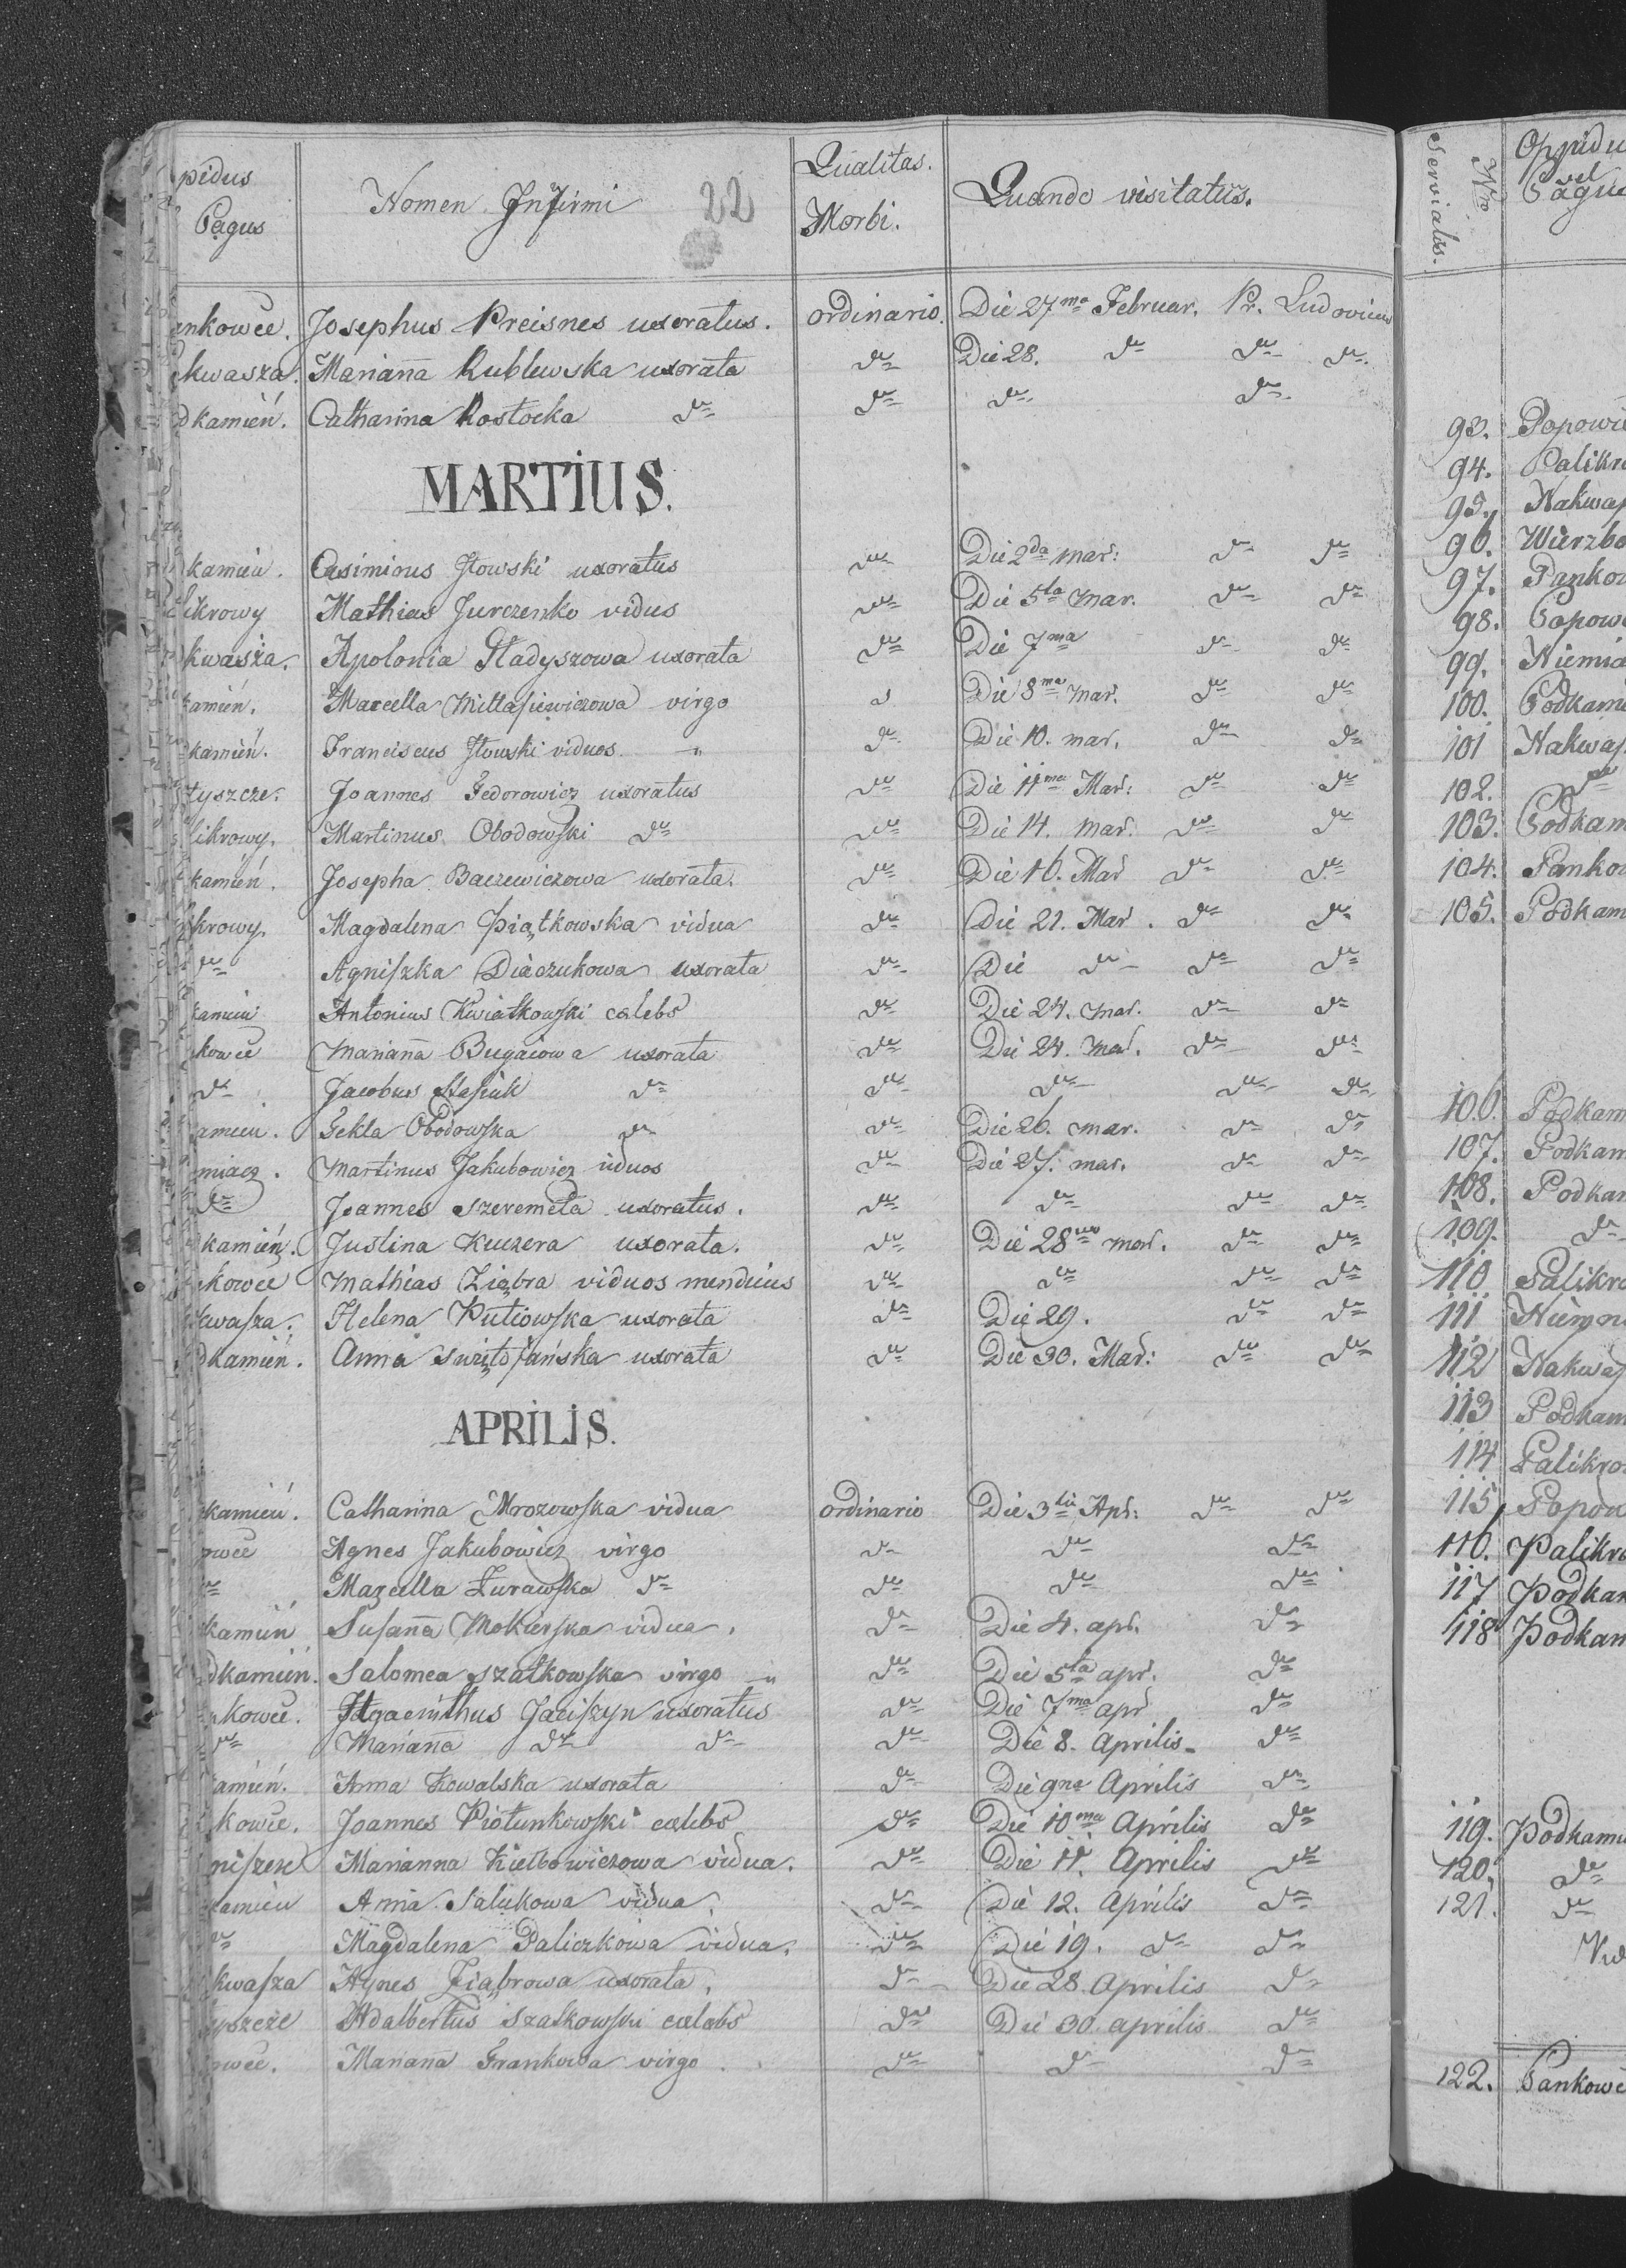 pidus Pagus | Nomen Infirmi 22 | Qualitas. Morbi. | Quando visitatus.
ankowce. Josephus Preisnes uxoratus. ordinario. Die 27ma Februar. Pr. Ludovicus
kwasza. Marianna Rublewska uxorata dto Die 28. dto dto dto
dkamień. Catharina Rostocka dto dto dto dto
MARTIUS.
kamień. Casimirus Jłowski uxoratus dto Die 2da mar: dto dto
likrowy Mathias Jurczenko vidus dto Die 5ta mar. dto dto
kwasza. Apolonia Gładyszowa uxorata dto Die 7ma dto dto
kamień. Marcella Mittasiewiczowa virgo d Die 8ma mar. dto dto
kamień. Franciscus Jłowski viduos " dto Die 10. mar. dto dto
tyszcze. Joannes Fedorowicz uxoratus dto Die 11ma Mar: dto dto
likrowy. Martinus Obodowski dto dto Die 14. mar. dto dto
kamień. Josepha Baczewiczowa uxorata. dto Die 16. Mar dto dto
krowy. Magdalena Piątkowska vidua dto Die 21. Mar. dto dto
dto Agniszka Diaczukowa uxorata dto Die dto dto dto
kamień Antonius Kwiatkowski cælebs dto Die 24. mar. dto dto
kowce Marianna Bugaiowa uxorata dto Die 24. mar. dto dto
dto Jacobus Stasiuk dto dto dto dto dto
amień. Tekla Obodowska dto dto Die 26. mar. dto dto
miacz. Martinus Jakubowicz viduos dto Die 27. mar. dto dto
dto Joannes Szeremeta uxoratus. dto dto dto dto
kamień. Justina Kuczera uxorata. dto Die 28va mar. dto dto
kowce Mathias Ziąbra viduos mendicus dto dto dto dto
kwasza. Helena Putiowska uxorata dto Die 29. dto dto
dkamień. Anna Swiętojańska uxorata dto Die 30. Mar: dto dto
APRILIS.
kamień. Catharina Mrozowska vidua ordinario Die 3tii Apr: dto dto
owce Agnes Jakubowicz virgo dto dto dto
dto Marcella Żurawska dto dto dto dto
kamień Susanna Mokierska vidua. dto Die 4. apr. dto
dkamień. Salomea Szatkowska virgo " dto Die 5ta apr. dto
kowce. Hyacinthus Jaciszyn uxoratus dto Die 7ma apr dto
dto Marianna dto dto dto Die 8. Aprilis dto
amień. Anna Kowalska uxorata dto Die 9na Aprilis dto
kowce. Joannes Piołunkowski cælebs dto Die 10ma Aprilis dto
niszcze Marianna Kielbowiczowa vidua. dto Die 11. Aprilis dto
kamień Anna Salukowa vidua. dto Die 12. Aprilis dto
dto Magdalena Paliczkowa vidua. dto Die 19. dto dto
kwasza Agnes Ziąbrowa uxorata. dto Die 28. Aprilis dto
yszcze Adalbertus Szatkowski cælebs dto Die 30. aprilis dto
owce. Marianna Frankowa virgo dto dto dto
Nro Serviales. Oppidu vel Pagu
93. Popowi
94. Palikro
95. Nakwas
96. Wierzbo
97. Pankow
98. Popow
99. Niemia
100. Podkami
101 Nakwas
102. dto
103. Podkam
104. Pankow
105. Podkam
106. Podkam
107. Podkam
108. Podkam
109. dto
110 Palikro
111 Niemn
112 Nakwas
113 Podkam
114 Palikro
115 Popow
116. Palikro
117 Podkam
118 Podkam
119. Podkami
120. dto
121. dto
Vid
122. Pankowc